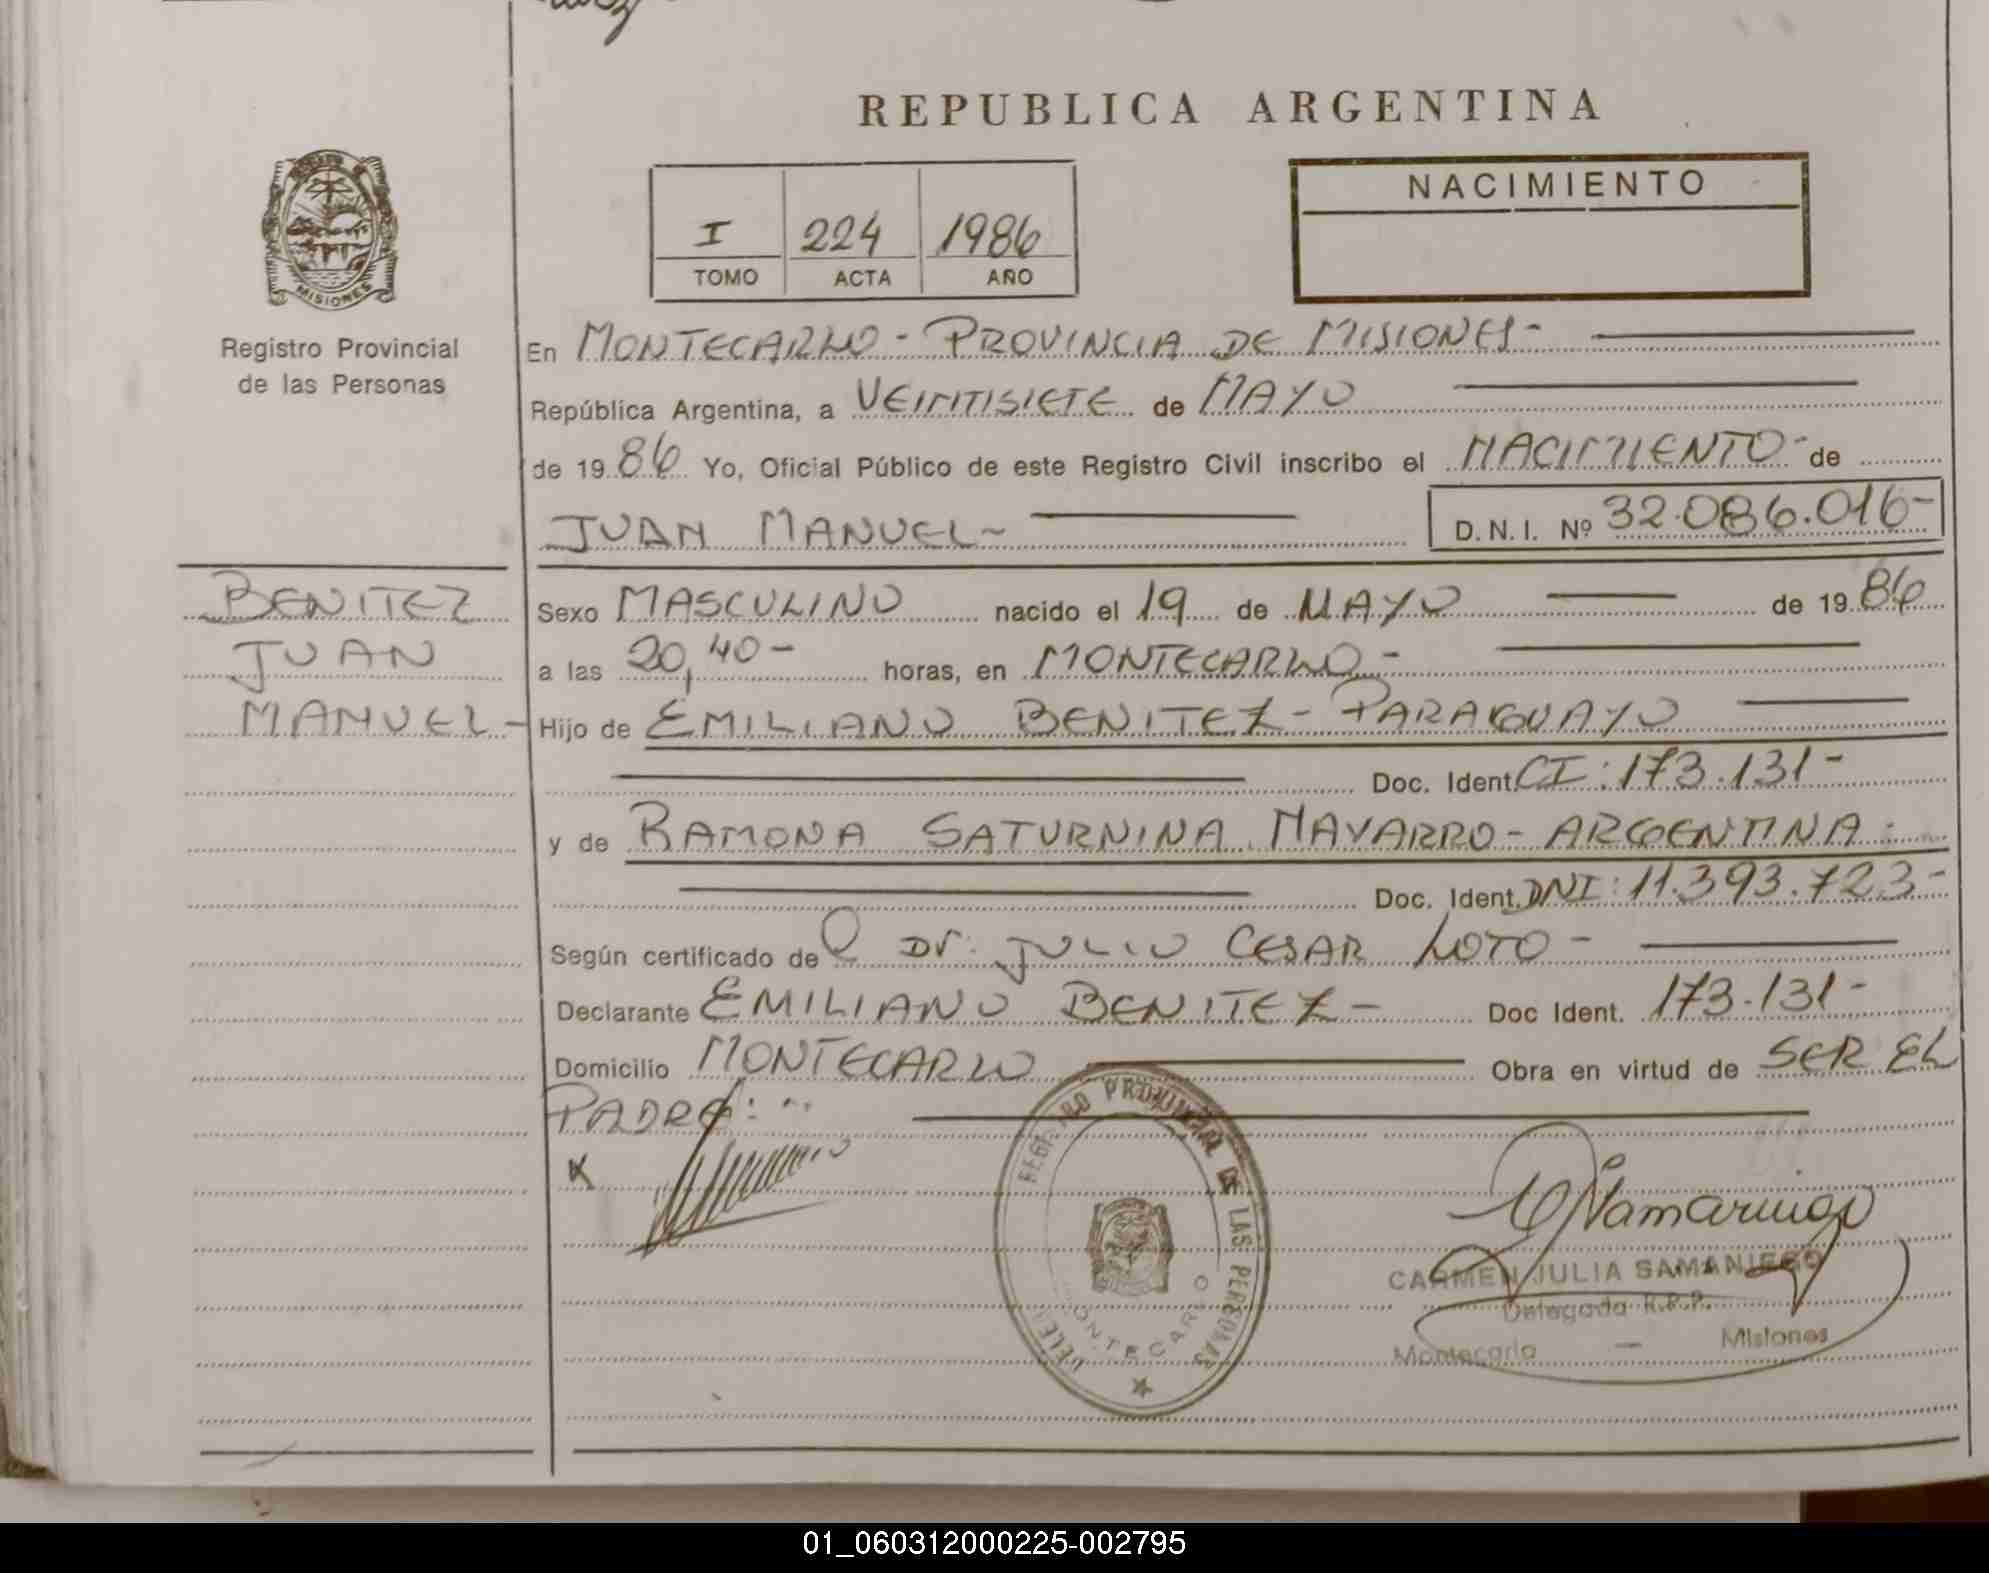 REPUBLICA ARGENTINA
MISIONES
Registro Provincial
de las Personas
I 224 1986
TOMO ACTA AÑO
NACIMIENTO
En MONTECARLO - PROVINCIA DE MISIONES-
República Argentina, a VEINTISIETE de MAYO
de 19 86 Yo, Oficial Público de este Registro Civil inscribo el NACIMIENTO- de
JUAN MANUEL-
D.N.I. Nº 32.086.016-
BENITEZ
JUAN
MANUEL-
Sexo MASCULINO nacido el 19 de MAYO de 19 86
a las 20,40- horas, en MONTECARLO-
Hijo de EMILIANO BENITEZ - PARAGUAYO
Doc. Ident. CI: 173.131-
y de RAMONA SATURNINA NAVARRO- ARGENTINA.
Doc. Ident. DNI: 11.393.723-
Según certificado de Dr. JULIO CESAR LOTO-
Declarante EMILIANO BENITEZ- Doc Ident. 173.131-
Domicilio MONTECARLO Obra en virtud de SER EL
PADRE:
REGISTRO PROVINCIAL DE LAS PERSONAS
MONTECARLO
CARMEN JULIA SAMANIEGO
Delegada R.P.P.
Montecarlo — Misiones
01_060312000225-002795